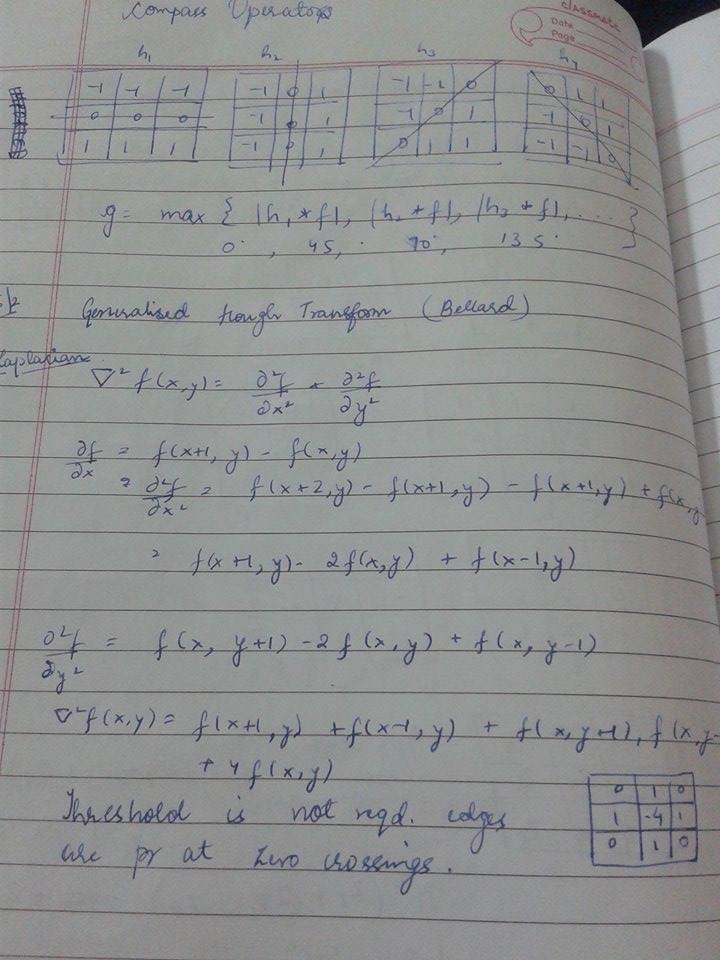 Compass Operators
classmate
Date
Page
h₁ h₂ h₃ h₄
-1 -1 -1
0 0 0
1 1 1
-1 0 1
-1 0 1
-1 0 1
-1 -1 0
-1 0 1
0 1 1
0 1 1
-1 0 1
-1 -1 0
g = max { |h₁ * f|, |h₂ * f|, |h₃ * f|, ... }
0°, 45, 90°, 135°
Generalised Hough Transform (Bellard)
Laplacian
∇² f(x,y) = ∂²f/∂x² + ∂²f/∂y²
∂f/∂x = f(x+1, y) - f(x,y)
= ∂²f/∂x² = f(x+2,y) - f(x+1,y) - f(x+1,y) + f(x,y
= f(x+1, y) - 2f(x,y) + f(x-1,y)
∂²f/∂y² = f(x, y+1) - 2f(x,y) + f(x, y-1)
∇²f(x,y) = f(x+1,y) + f(x-1,y) + f(x,y+1), f(x,y-
+ 4f(x,y)
Threshold is not reqd. edges
are pr at zero crossings.
0 1 0
1 -4 1
0 1 0